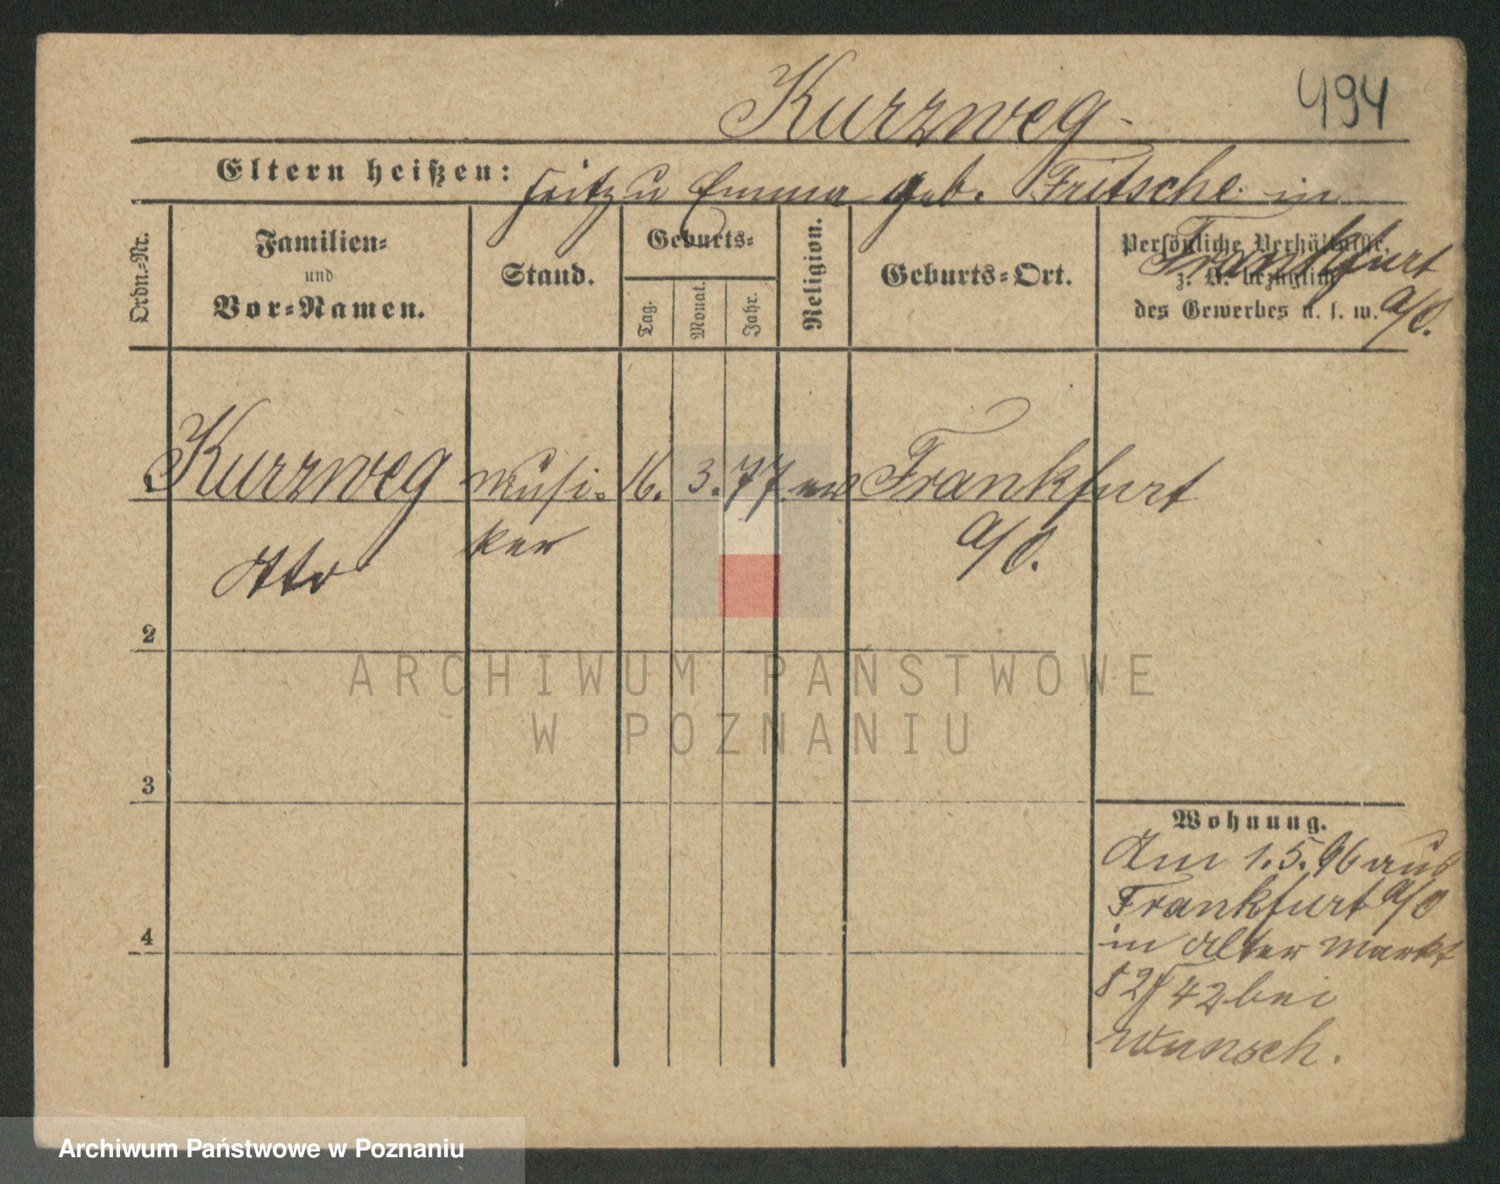 Kurzweg
494
Eltern heißen: Fritz u Emma geb. Fritsche in
Frankfurt
a/O.
Ordn.-Nr.
Familien-
und
Vor-Namen.
Stand.
Geburts-
Tag.
Monat.
Jahr.
Religion.
Geburts-Ort.
Persönliche Verhältnisse,
z. B. bezüglich
des Gewerbes u. s. w.
Kurzweg Musi- 16. 3. 77 ev Frankfurt
Otto ker a/O.
2
3
4
Wohnung.
Am 1.5.96 aus
Frankfurt a/O
in Alter Markt
42 bei
Wunsch.
ARCHIWUM PAŃSTWOWE
W POZNANIU
Archiwum Państwowe w Poznaniu